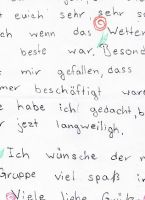 euch sehr, sehr s
ch wenn das Wetter
beste war. Besond
mir gefallen, dass
mer beschöftigt war
e habe ich gedacht, b
r jezt langweiligh.
Ich wünsche der n
Gruppe viel spaß in
Viele liebe Grüß